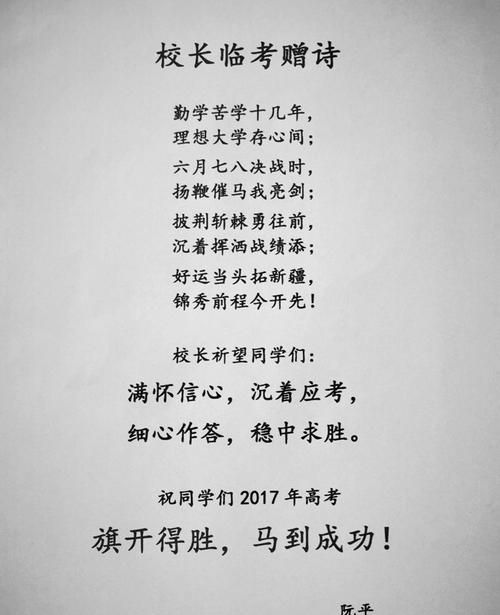 校长临考赠诗
勤学苦学十几年，
理想大学存心间；
六月七八决战时，
扬鞭催马我亮剑；
披荆斩棘勇往前，
沉着挥洒战绩添；
好运当头拓新疆，
锦秀前程今开先！
校长祈望同学们：
满怀信心，沉着应考，
细心作答，稳中求胜。
祝同学们2017年高考
旗开得胜，马到成功！
阮平